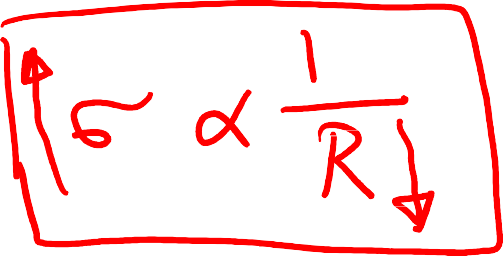 ↑ σ ∝ 1/R ↓